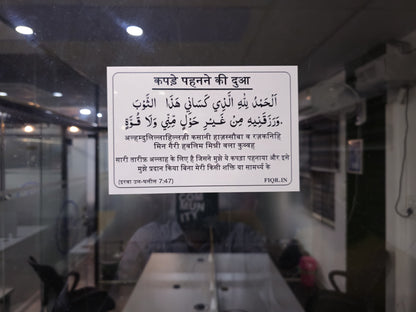 कपड़े पहनने की दुआ
اَلْحَمْدُ لِلّٰهِ الَّذِي كَسَانِي هَذَا الثَّوْبَ
وَرَزَقَنِيهِ مِنْ غَيْرِ حَوْلٍ مِنِّي وَلَا قُوَّةٍ.
अल्हम्दुलिल्लाहिल्लज़ी कसानी हाज़स्सौबा व रज़कनिहि
मिन गैरी हवलिम मिन्नी वला कुव्वह
सारी तारीफ़ अल्लाह के लिए है जिसने मुझे ये कपड़ा पहनाया और इसे
मुझे प्रदान किया बिना मेरी किसी शक्ति या सामर्थ्य के
(इरवा उल-ग़लील 7:47) FIQR.IN
COM
MUNITY